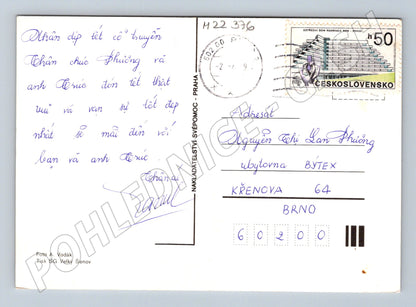 Nhân dịp tết cổ truyền
Thân chúc Phường và
anh Trúc đón tết thật
vui và vạn sự tốt đẹp
nhất sẽ mãi đến với
bạn và anh Trúc.
Thân ái
Foto A. Vodák
Tisk SG Velký Šenov
NAKLADATELSTVÍ SVÉPOMOC - PRAHA
H 22 376
h 50
ČESKOSLOVENSKO
Adresát
Nguyễn Thị Lan Phường
ubytovna BYTEX
KŘENOVA 64
BRNO
6 0 2 0 0
POHLEDNICE